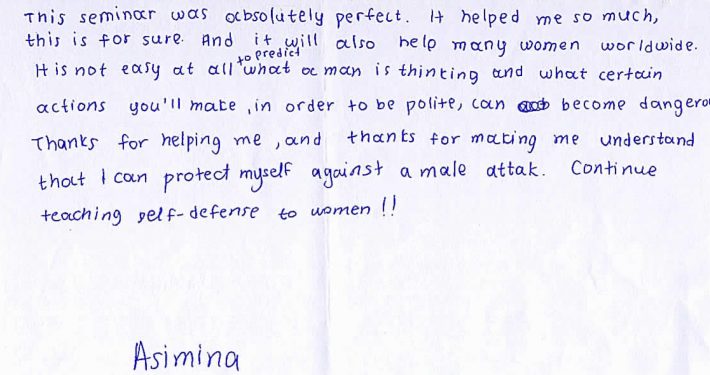 This seminar was absolutely perfect. It helped me so much,
this is for sure. And it will also help many women worldwide.
It is not easy at all to predict what a man is thinking and what certain
actions you'll make, in order to be polite, can become dangero
Thanks for helping me, and thanks for making me understand
that I can protect myself against a male attak. Continue
teaching self-defense to women!!
Asimina